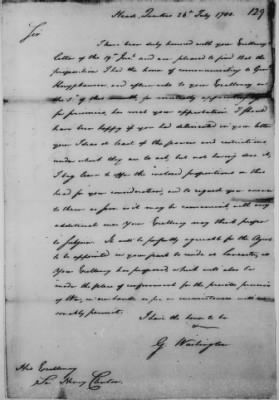 129
Head Quarters 26th July 1780.
Sir
I have been duly honored with your Excellency's
letter of the 19th Inst. and am pleased to find that the
proposition I had the honor of communicating to Genl
Knyphausen, and afterwards to your Excellency on
the 5th of this month for mutually appointing Agents
for prisoners, has met your approbation. I should
have been happy if you had delineated in your letter
your Ideas at least of the powers and restrictions
under which they are to act, but not having done it,
I beg leave to offer the inclosed propositions on this
head for your consideration, and to request your concurrence
to them as soon as it may be convenient with any
additional ones Your Excellency may think proper
to subjoin. It will be perfectly agreeable for the Agent
to be appointed on your part to reside at Lancaster, as
Your Excellency has proposed which will also be
made the place of confinement for the private prisoners
of War, in our hands as far as circumstances will
conveniently permit.
I have the honor to be
G Washington
His Excellency
Sir Henry Clinton